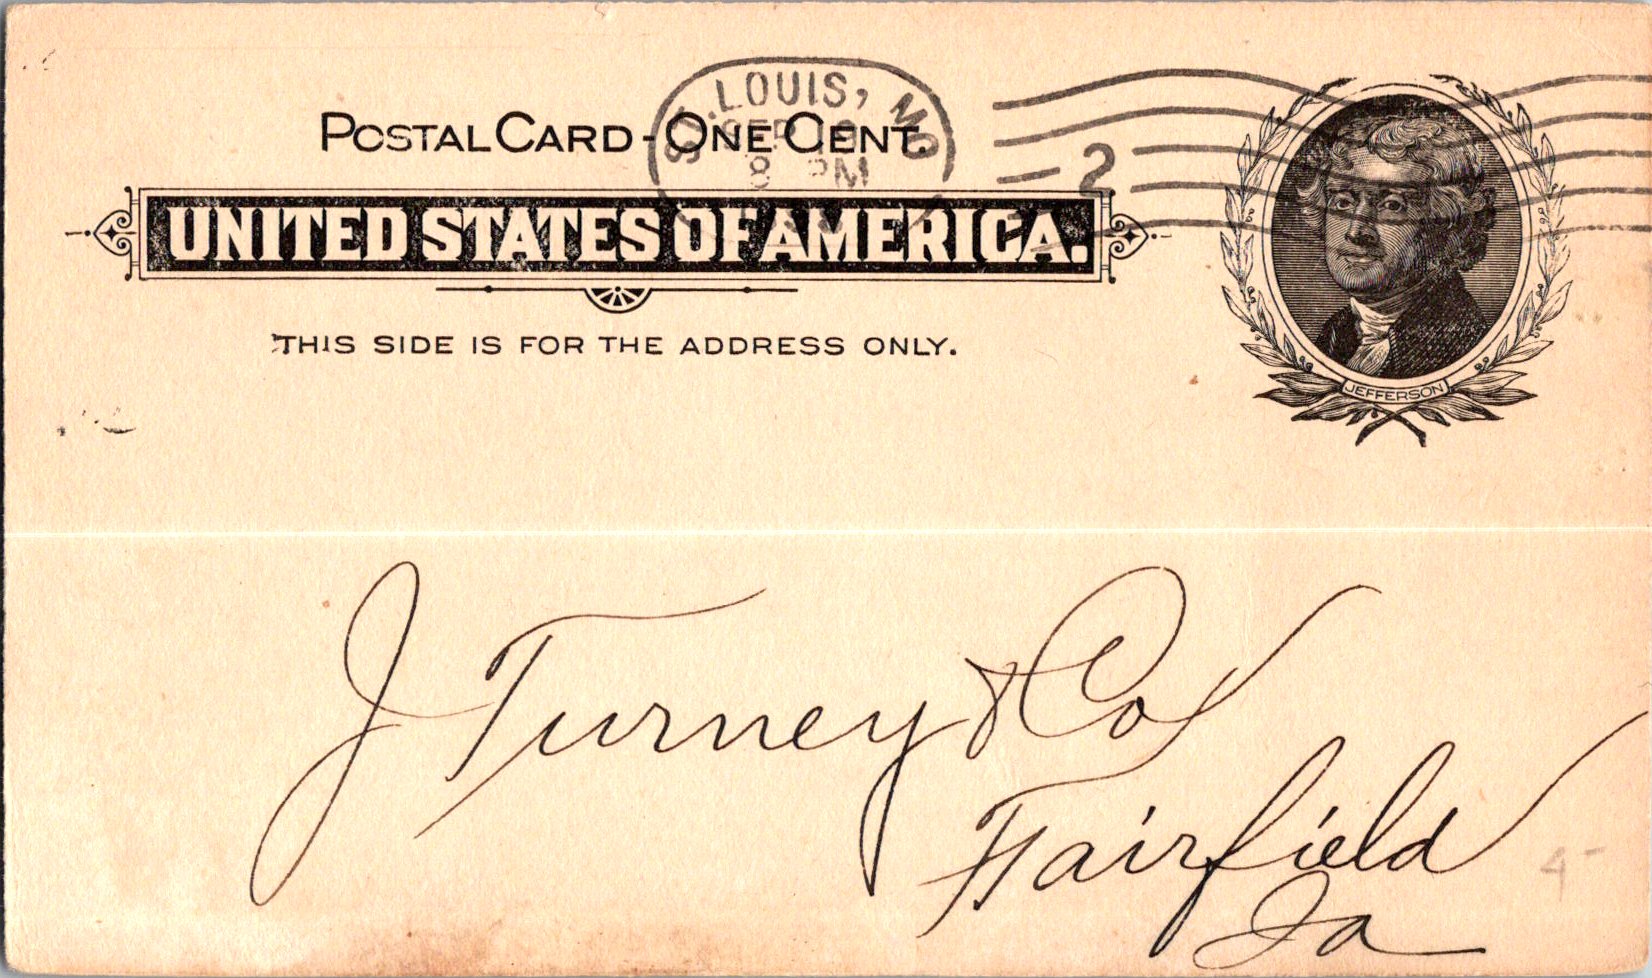 ST. LOUIS, MO
SEP
8 PM
2
POSTAL CARD - ONE CENT.
UNITED STATES OF AMERICA.
THIS SIDE IS FOR THE ADDRESS ONLY.
JEFFERSON
J Turney & Co
Fairfield
Ia
4